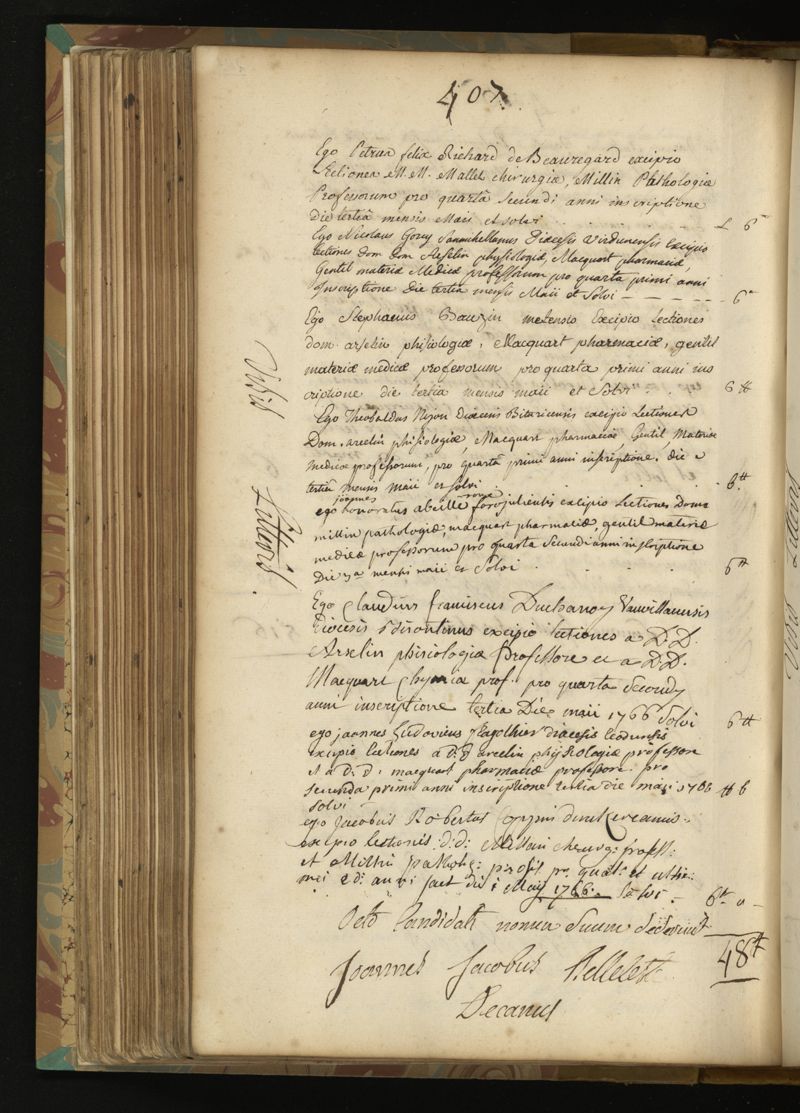 407.
Ego Petrus felix Richard de Beauregard excipio
lectiones M. M. Mallet chirurgiæ, Millin Pathologiæ
Professorum pro quartâ secundi anni inscriptione
die tertiâ mensis Maii et solvi . . . . . . . £ 6
Ego Nicolaus Gorcy Diœcesis Virdunensis Excipio
lectiones dom dom Arselin physiologiæ, Macquart pharmaciæ,
Gentil materiæ Medicæ professorum pro quarta primi anni
Inscriptione Die tertia mensis Maii et Solvi - - - - - 6
Ego Stephanus Bauzin metensis Excipio lectiones
dom. arselin phisiologiæ, Macquart pharmaciæ, gentil
materiæ medicæ professorum pro quarta primi anni ins
criptione die tertia mensis maii et Solvi . . 6 ₶
Visis
Ego Theobaldus Nijon Diœcesis Bituricensis excipio Lectiones
Dom. arcelin phisiologiæ, Macquart pharmaciæ, Gentil Materiæ
Medicæ professorum, pro quartâ primi anni inscriptione. die
tertiâ mensis maii et solvi . . . . . 6 ₶
joannes
ego honoratus abeille forojuliensis excipio Lectiones Dom
millin pathologiæ, macquart pharmaciæ, gentil materiæ
medicæ professorum pro quarta Secundi anni inscriptione
Die 3a mensis maii et Solvi . . . . 6 ₶
Litteris.
Ego Claudius franciscus Duchanoy Vauvillanensis
Diœcesis Bisontinus excipio lectiones a D.D.
Arselin phisiologiæ Professore et a D.D.
Macquart Chymiæ prof. pro quarta Secundj
anni inscriptione tertia Die maii 1766 Solvi 6 ₶
ego joannes Ludovicus diœcesis leodiensis
excipio lectiones a d: d arcelin physiologiæ professore
et a d: d: macquart pharmaciæ professore. pro
secunda primi anni inscriptione tertia die maii 1766 ₶ 6
solvi
ego Jacobus Robertus Coppin dunkercanus
excipio lectionis: d: d: chirurg: profess:
et Millin patholog: profess pr. quart: et ultim:
mei 2di anni fact die i Maij 1766. solvi - 6 ₶ 0 -
Octo Candidati nomen Suum dederunt
48 ₶
Joannes Jacobus Belleteste
Decanus